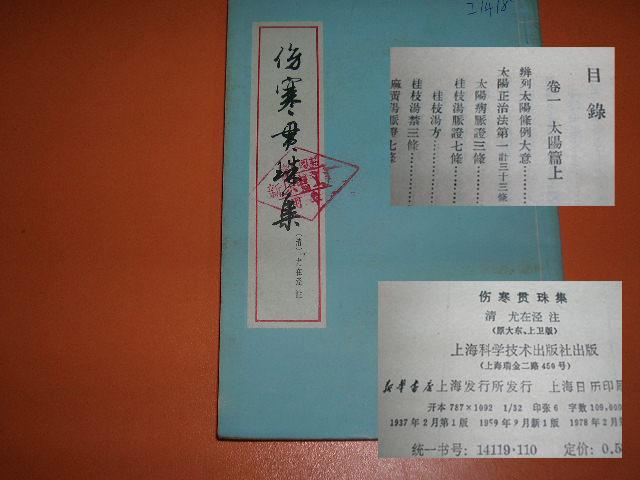 伤寒贯珠集
(清)尤在泾 注
目錄
卷一 太陽篇上
辨列太陽條例大意
太陽正治法第一 計三十三條
太陽病脈證三條
桂枝湯脈證七條
桂枝湯方
桂枝湯禁三條
麻黃湯脈證七條
伤寒贯珠集
清 尤在泾 注
(原大东、上卫版)
上海科学技术出版社出版
(上海瑞金二路450号)
新华书店上海发行所发行 上海日历印
开本 787×1092 1/32 印张 6 字数 109,000
1937年2月第1版 1959年9月新1版 1978年2月
统一书号: 14119·110 定价: 0.5